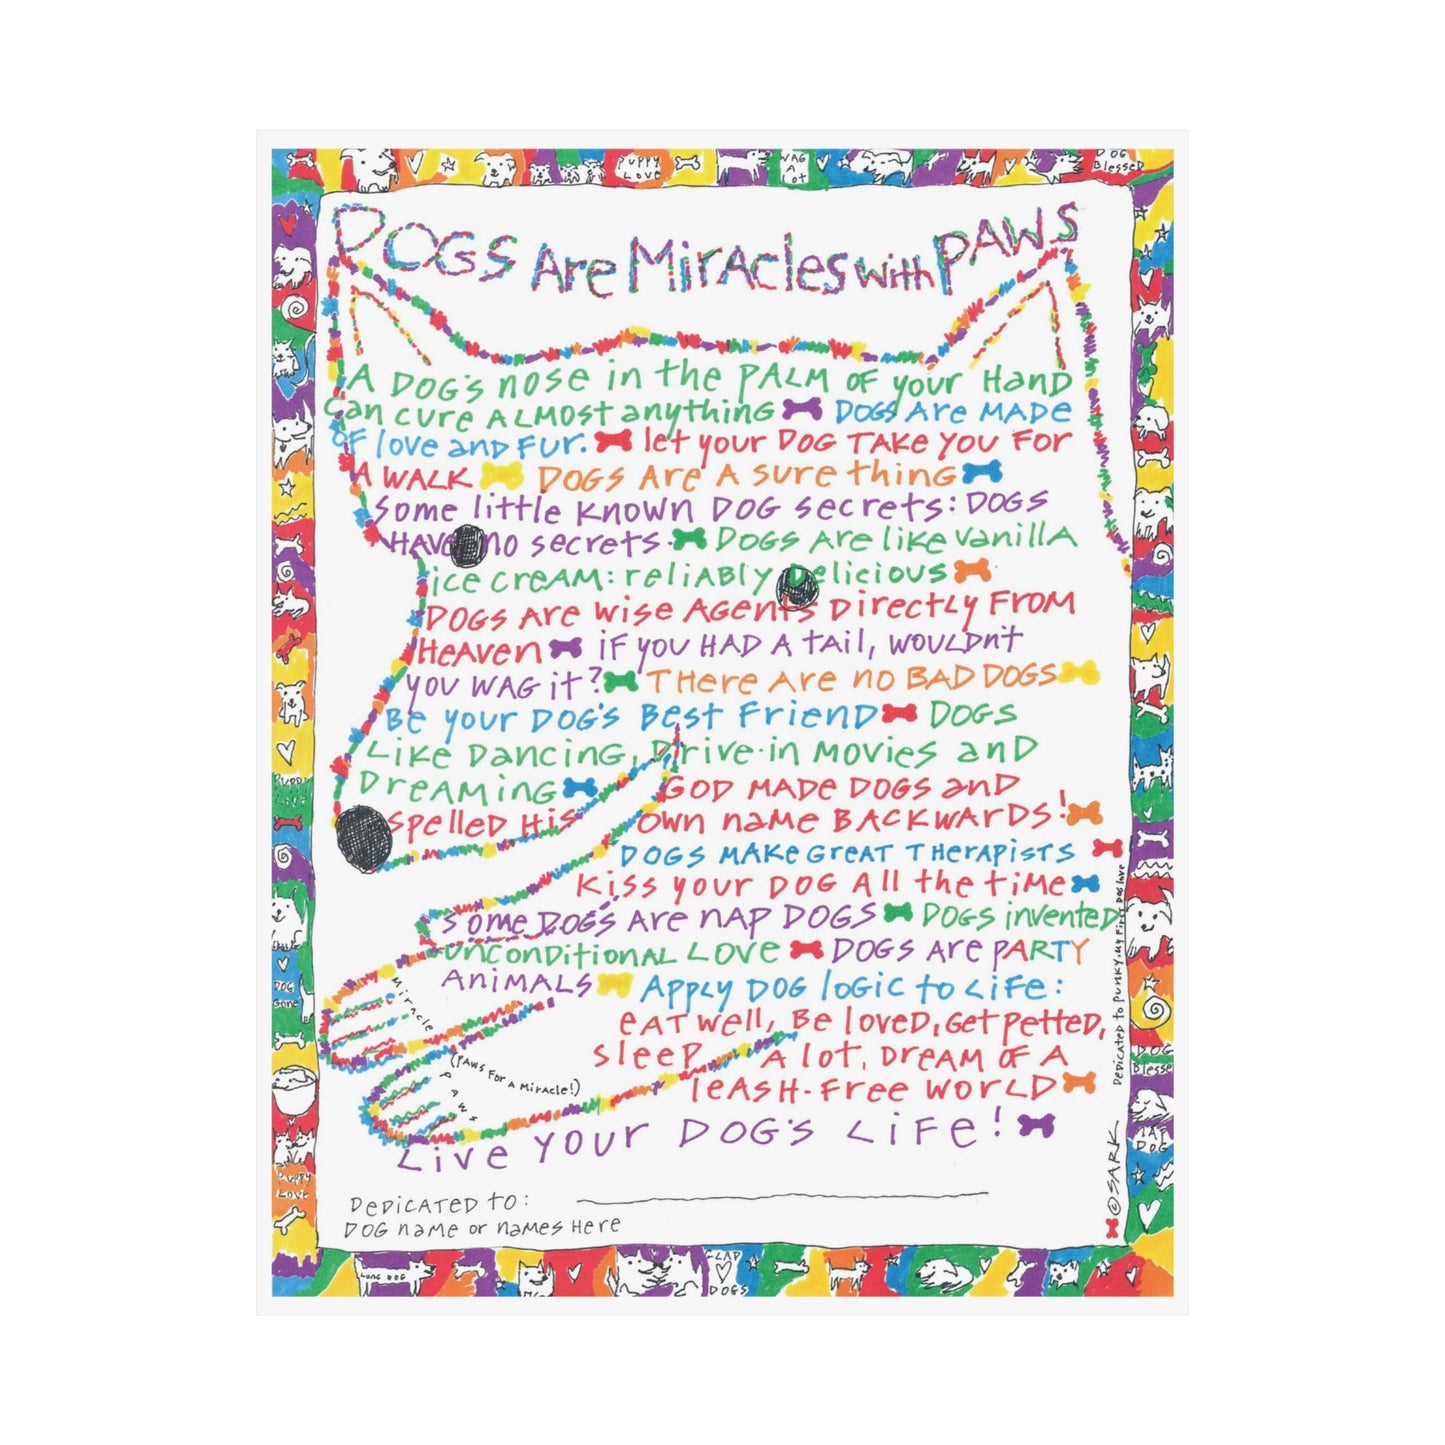 PUPPY LOVE
WAG A LOT
DOG Blessed
DOGS Are Miracles with PAWS
A DOG'S nose in the PALM OF your HAND
can cure ALMOST anything DOGS Are MADE
OF love and FUR. let your DOG TAKE YOU FOR
A WALK DOGS Are A sure thing
Some little known DOG secrets: DOGS
HAVE no secrets. DOGS Are like vanilla
ice cream: reliABly Delicious
DOGS Are wise Agents Directly FROM
Heaven iF you HAD A tail, WOULDn't
you WAG it? THere Are no BAD DOGS
Be your DOG'S Best Friend DOGS
Like Dancing, Drive-in movies and
Dreaming GOD MADe DOGS and
spelled His own name BACKWARDS!
DOGS MAKe Great THerapists
Kiss your DOG All the time
Some DOGS Are nap DOGS DOGS invented
unconditional LOVE DOGS Are PARTY
AniMALS Apply DOG logic to Life:
eat well, Be loved, Get petted,
sleep A lot, Dream OF A
leASH-Free WORLD
Live your DOG'S LiFe!
Miracle
PAWS
(PAWS For A Miracle!)
Dedicated to Punky, my First Dog love
©SARK
Dedicated to:
DOG name or names Here
DOG Bone
Puppy Love
LAP DOG
LONG DOG
GLAD DOGS